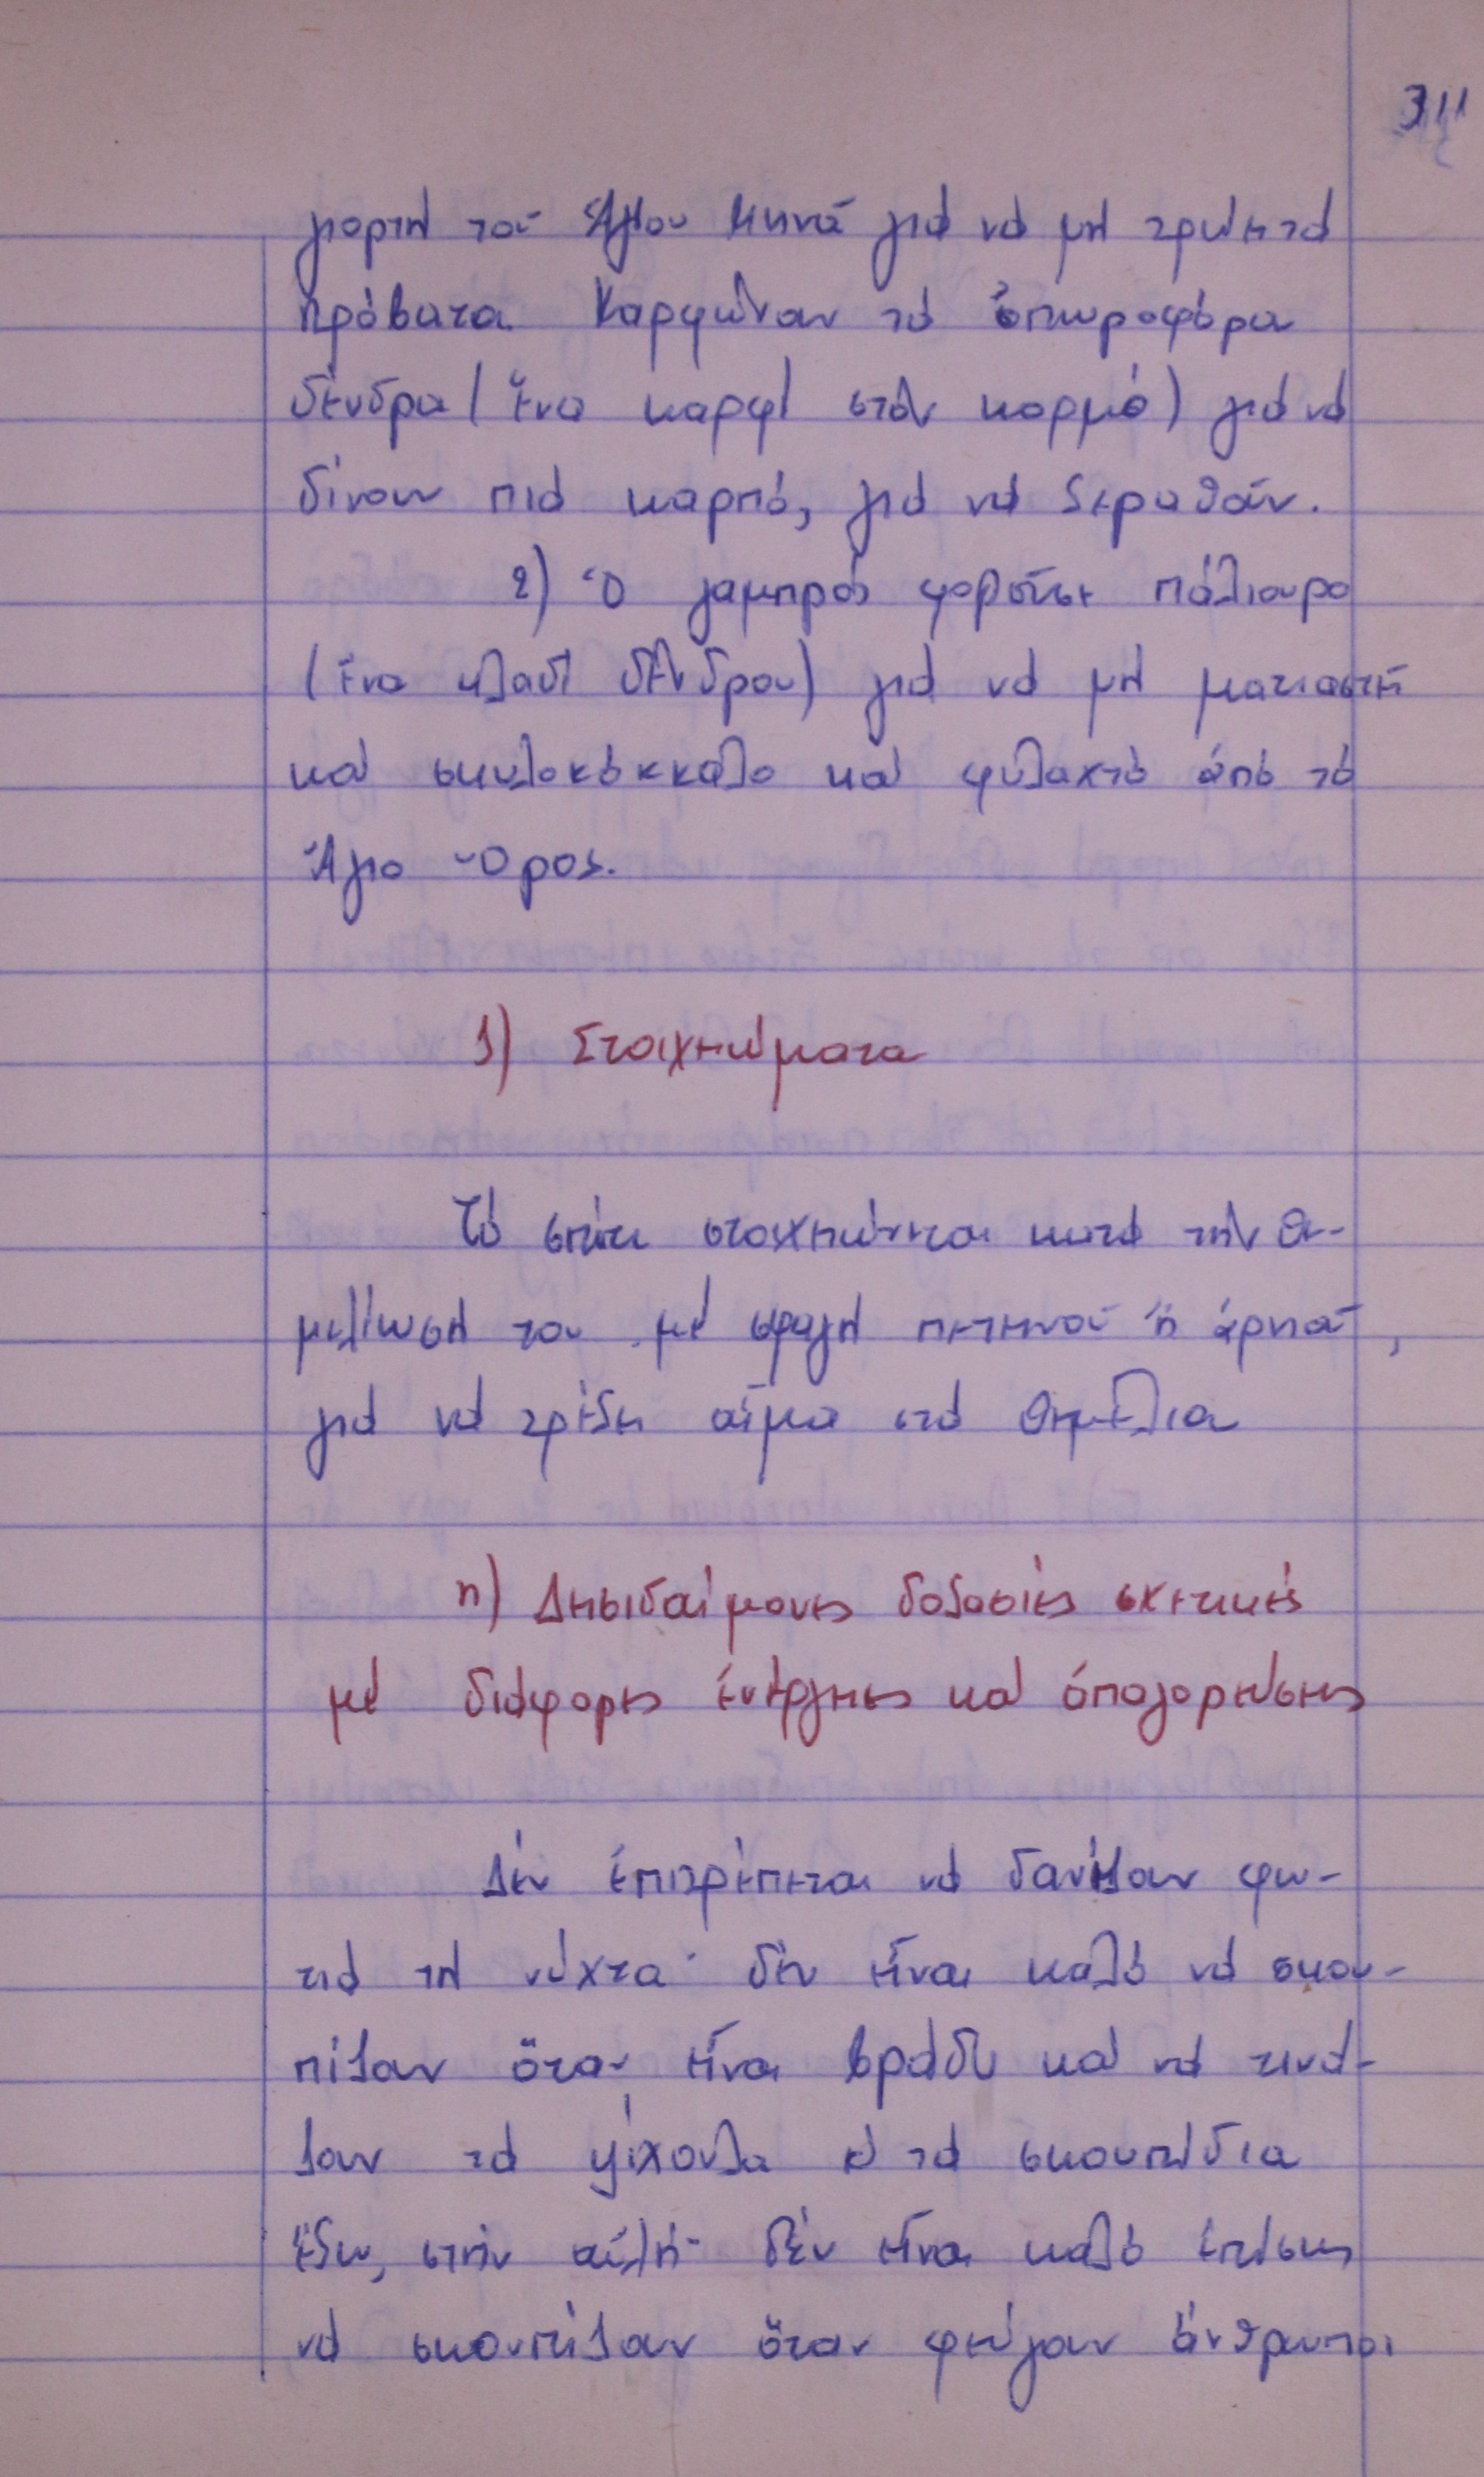 311
γιορτή τοῦ Ἁγίου Μηνᾶ γιά νά μή τρώει τά
πρόβατα. Καρφώναν τά ὀπωροφόρα
δένδρα (ἕνα καρφί στόν κορμό) γιά νά
δίνουν πιά καρπό, γιά νά ξεραθοῦν.
2) Ὁ γαμπρός φοροῦσε πάλιουρο
(ἕνα κλαδί δένδρου) γιά νά μή ματιαστῆ
καί σκυλοκόκκαλο καί φυλαχτό ἀπό τό
Ἅγιο Ὄρος.
ζ) Στοιχειώματα
Τό σπίτι στοιχειώνεται κατά τήν θε-
μελίωσή του μέ σφαγή πετεινοῦ ἤ ἀρνιοῦ,
γιά νά τρέξη αἷμα στά θεμέλια
η) Δεισιδαίμονες δοξασίες σχετικές
μέ διάφορες ἐνέργειες καί ἀπαγορεύσεις
Δέν ἐπιτρέπεται νά δανείζουν φω-
τιά τή νύχτα· δέν εἶναι καλό νά σκου-
πίζουν ὅταν εἶναι βράδυ καί νά τινά-
ζουν τά ψίχουλα ἤ τά σκουπίδια
ἔξω, στήν αὐλή· δέν εἶναι καλό ἐπίσης
νά σκουπίζουν ὅταν φεύγουν ἄνθρωποι